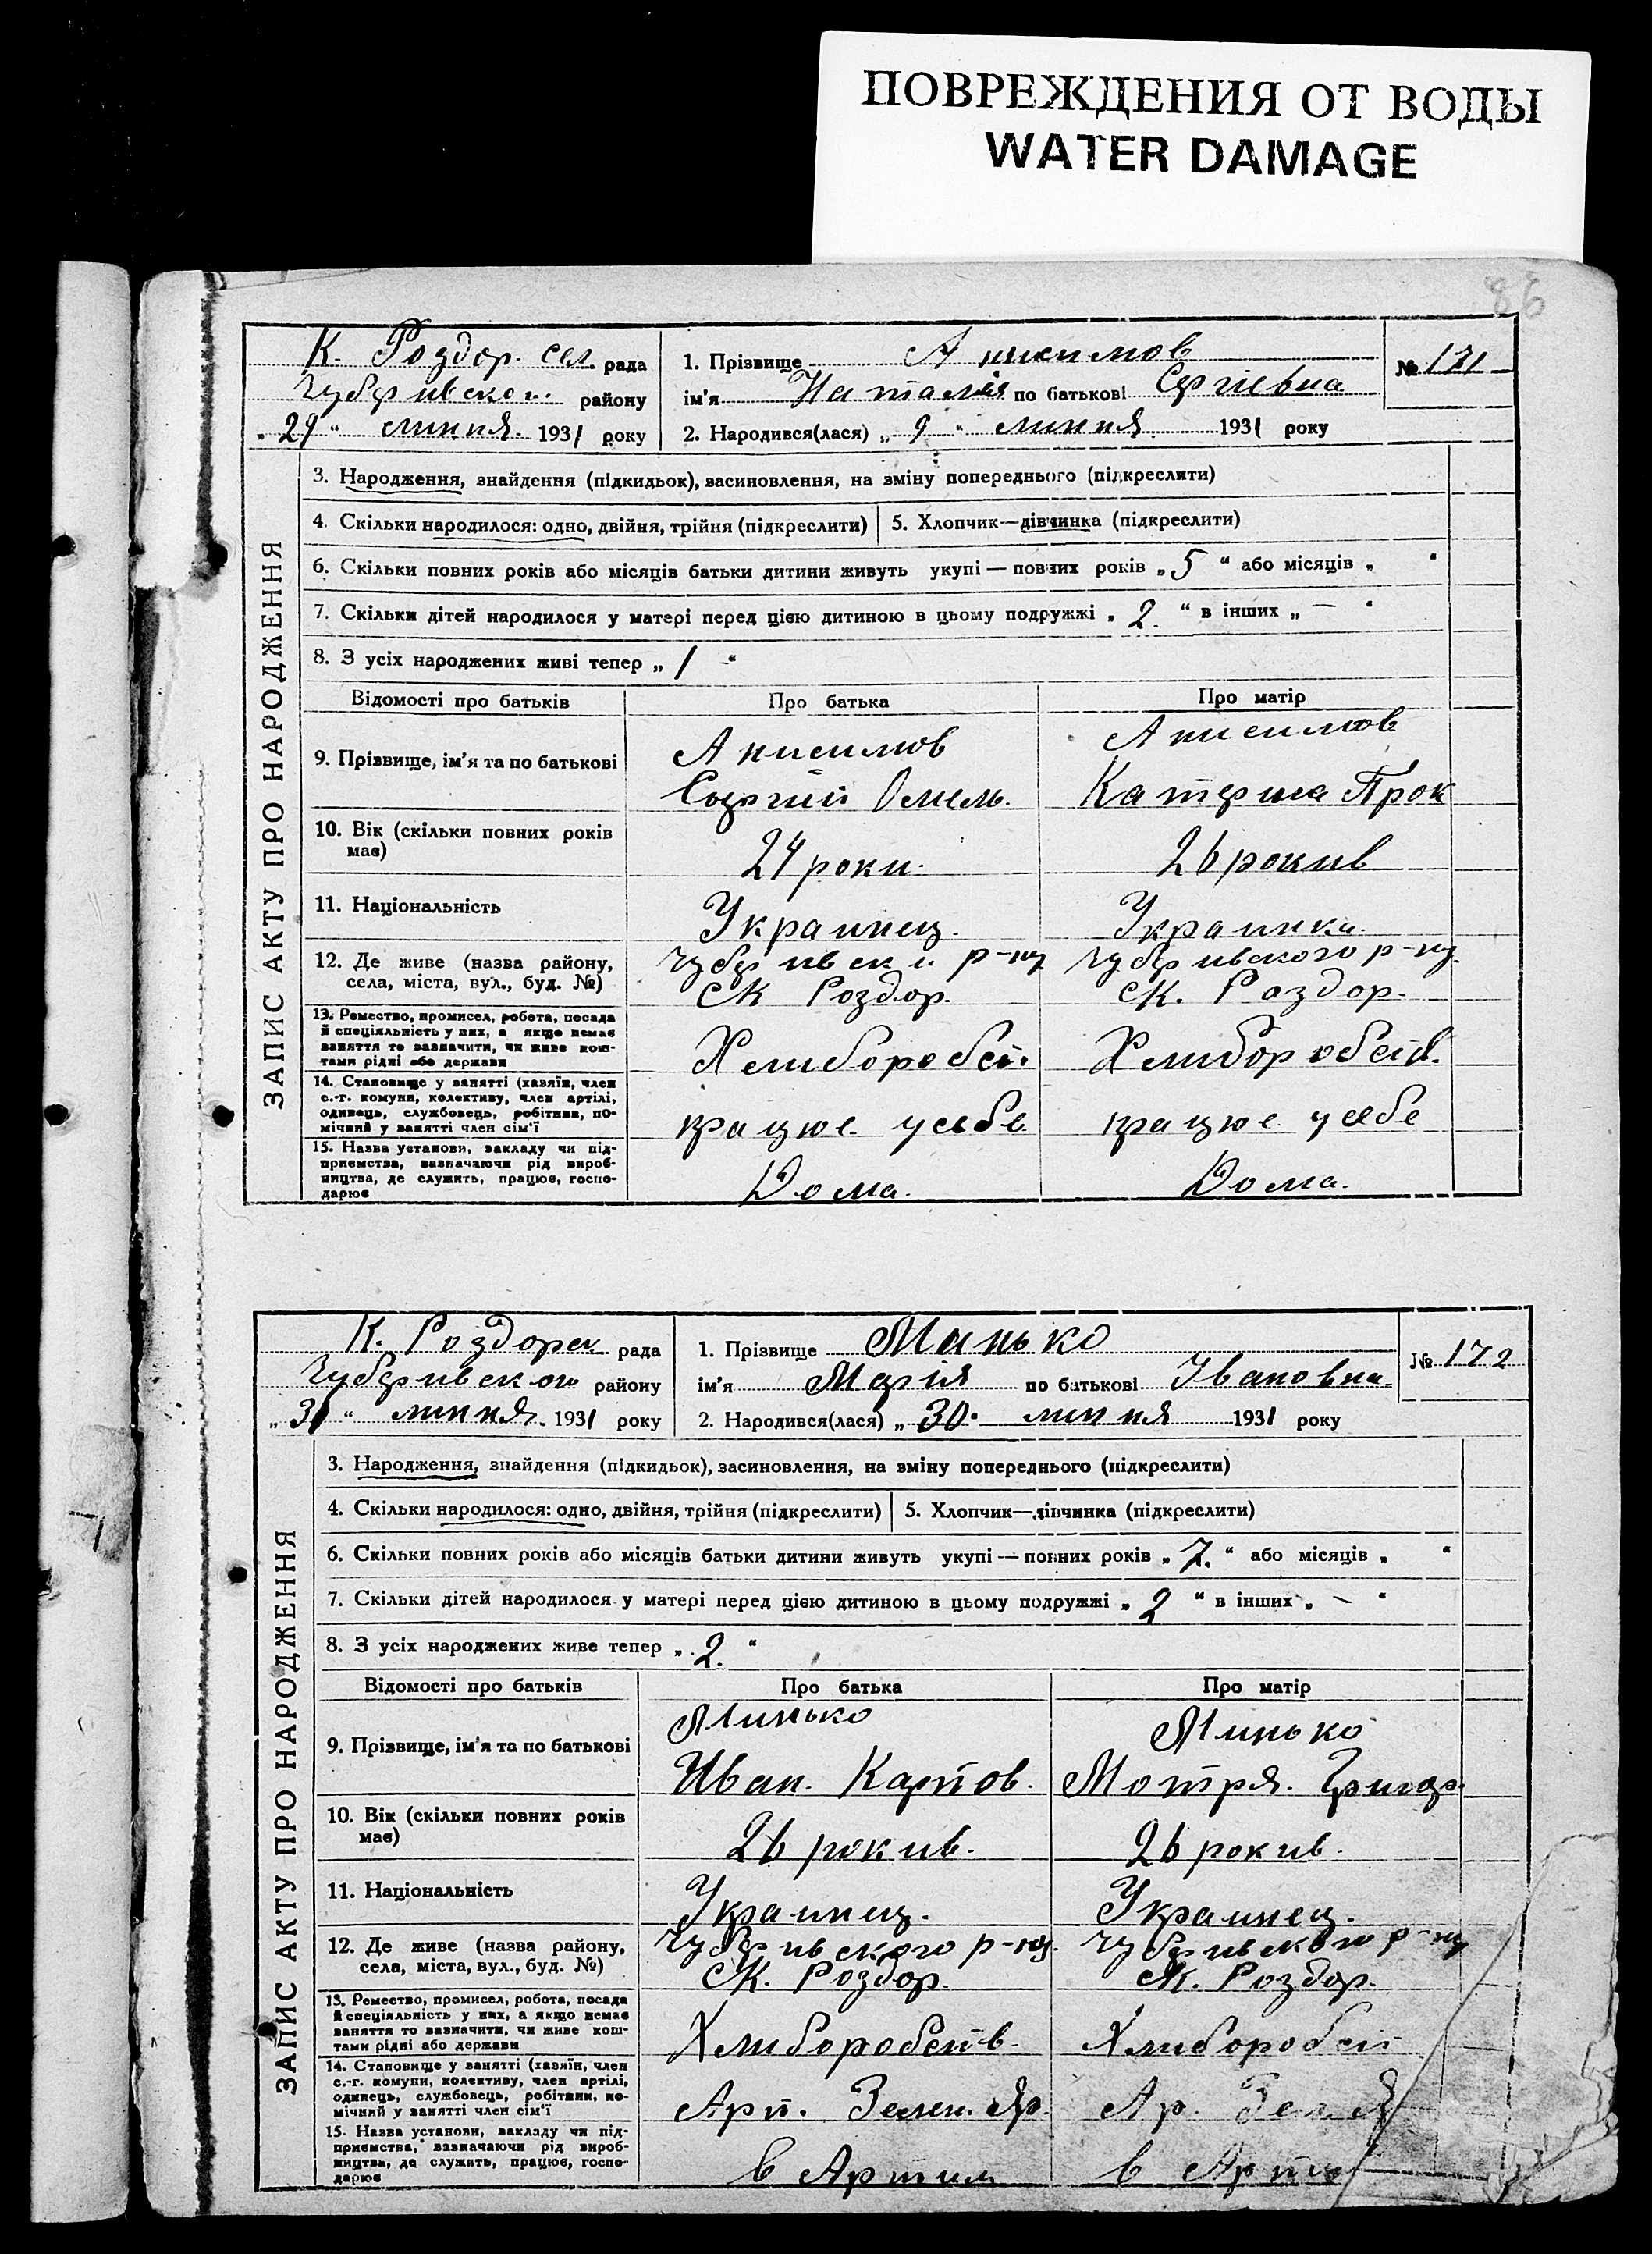 ПОВРЕЖДЕНИЯ ОТ ВОДЫ
WATER DAMAGE
86
К. Роздор. сел. рада
Чубарівског. району
„ 29 “ липня. 1931 року
1. Прізвище Анисимов
ім'я Наталія по батькові Сергіевна
2. Народився(лася) „ 9 “ липня 1931 року
№ 171
ЗАПИС АКТУ ПРО НАРОДЖЕННЯ
3. Народження, знайдення (підкидьок), васиновлення, на вміну попереднього (підкреслити)
4. Скільки народилося: одно, двійня, трійня (підкреслити) 5. Хлопчик—дівчинка (підкреслити)
6. Скільки повних років або місяців батьки дитини живуть укупі — повних років „ 5 “ або місяців „ “
7. Скільки дітей народилося у матері перед цією дитиною в цьому подружжі „ 2. “ в інших „ — “
8. З усіх народжених живі тепер „ 1 “
Відомості про батьків Про батька Про матір
9. Прізвище, ім'я та по батькові
Анисимов Анисимов
Сергий Омель. Катерина Прок
10. Вік (скільки повних років має)
24 роки. 26 рокив
11. Національність
Украинец. Украинка.
12. Де живе (назва району, села, міста, вул., буд. №)
р-ну Чубаривского р-ну.
СК Роздор. СК. Роздор.
13. Ремество, промисел, робота, посада
й спеціяльність у них, а якщо немає
заняття то зазначити, чи живе кош-
тами рідні або держави
Хлиборобст. Хлиборобств.
14. Становище у занятті (хазяїн, член
с.-г. комуни, колективу, член артілі,
одинець, службовець, робітник, по-
мічний у занятті член сім'ї
працює у себе працює у себе
15. Назва установи, закладу чи під-
приємства, зазначаючи рід вироб-
ництва, де служить, працює, госпо-
дарює
Дома. Дома.
К. Роздорск рада
району
„ 31 “ липня. 1931 року
1. Прізвище Манько
ім'я Марія по батькові Івановна.
2. Народився(лася) „ 30. липня 1931 року
№ 172
ЗАПИС АКТУ ПРО НАРОДЖЕННЯ
3. Народження, знайдення (підкидьок), засиновлення, на вміну попереднього (підкреслити)
4. Скільки народилося: одно, двійня, трійня (підкреслити) 5. Хлопчик—дівчинка (підкреслити)
6. Скільки повних років або місяців батьки дитини живуть укупі — повних років „ 7. “ або місяців „ “
7. Скільки дітей народилося у матері перед цією дитиною в цьому подружжі „ 2 “ в інших „ — “
8. З усіх народжених живе тепер „ 2. “
Відомості про батьків Про батька Про матір
9. Прізвище, ім'я та по батькові
Манько Манько
Иван. Карпов. Мотря. Григор.
10. Вік (скільки повних років має)
26 рокив. 26 рокив.
11. Національність
Украинец. Украинец.
12. Де живе (назва району, села, міста, вул., буд. №)
Чубаривского р-ну. Чубаривского р-ну
СК. Роздор. СК. Роздор.
13. Ремество, промисел, робота, посада
й спеціяльність у них, а якщо немає
заняття то зазначити, чи живе кош-
тами рідні або держави
Хлиборобств. Хлиборобст
14. Становище у занятті (хазяїн, член
с.-г. комуни, колективу, член артілі,
одинець, службовець, робітник, по-
мічний у занятті член сім'ї
Арт. Зелен. Яр. Ар.
15. Назва установи, закладу чи під-
приємства, зазначаючи рід вироб-
ництва, де служить, працює, госпо-
дарює
в Артили в